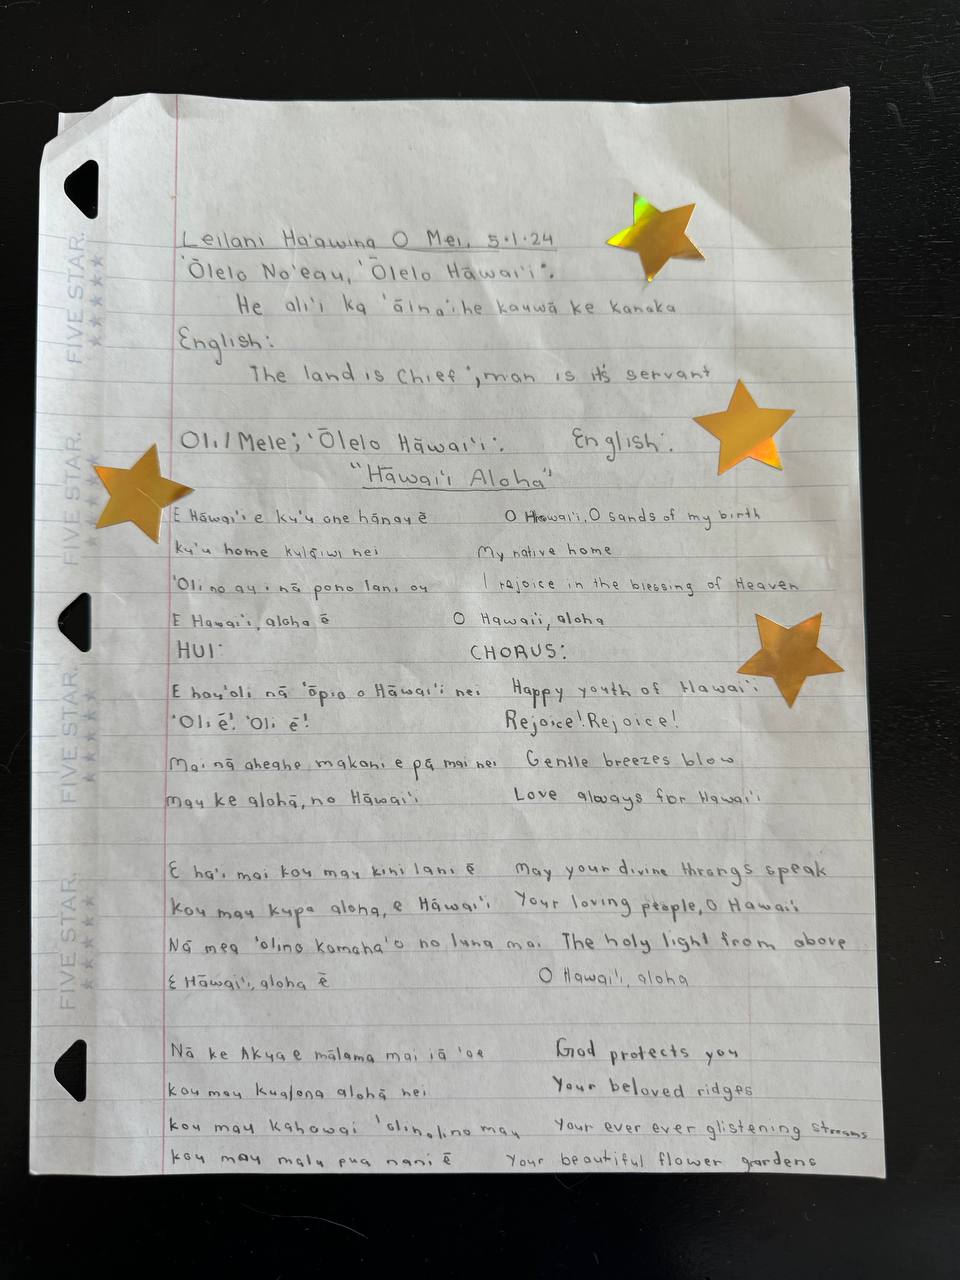 Leilani Ha'awina O Mei, 5.1.24
'Ōlelo No'eau, 'Ōlelo Hāwai'i:
He ali'i ka 'āina; he kauwā ke kanaka
English:
The land is chief; man is its servant
Oli/Mele; 'Ōlelo Hāwai'i: English:
"Hāwai'i Aloha"
E Hāwai'i e ku'u one hānau ē O Hawai'i, O sands of my birth
ku'u home kulāiwi nei My native home
'Oli no au i nā pono lani ou I rejoice in the blessing of Heaven
E Hawai'i, aloha ē O Hawai'i, aloha
HUI: CHORUS:
E hau'oli nā 'ōpio o Hāwai'i nei Happy youth of Hawai'i
'Oli ē! 'Oli ē! Rejoice! Rejoice!
Mai nā aheahe makani e pā mai nei Gentle breezes blow
mau ke alohā, no Hāwai'i Love always for Hawai'i
E ha'i mai kou mau kini lani ē May your divine throngs speak
kou mau kupa aloha, e Hāwai'i Your loving people, O Hawai'i
Nā mea 'olino kamaha'o no luna mai The holy light from above
E Hāwai'i, aloha ē O Hawai'i, aloha
Nā ke Akua e mālama mai iā 'oe God protects you
kou mau kualona alohā nei Your beloved ridges
kou mau kahawai 'olinolino mau Your ever ever glistening streams
kou mau mala pua nani ē Your beautiful flower gardens
FIVE STAR.
FIVE STAR.
FIVE STAR.
FIVE STAR.